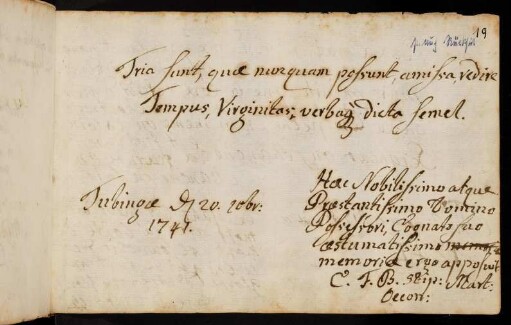 19
Tria sunt, quæ nunquam possunt amissa, redire
Tempus, Virginitas, verbaq dicta semel.
Tubingæ D 20. 10br:
1741.
Hæc Nobilissimo atque
Præstantissimo Domino
Possessori, Cognato suo
æstumatissimo
memoriæ ergo apposuit
C. F. B. Mart:
Oecon: